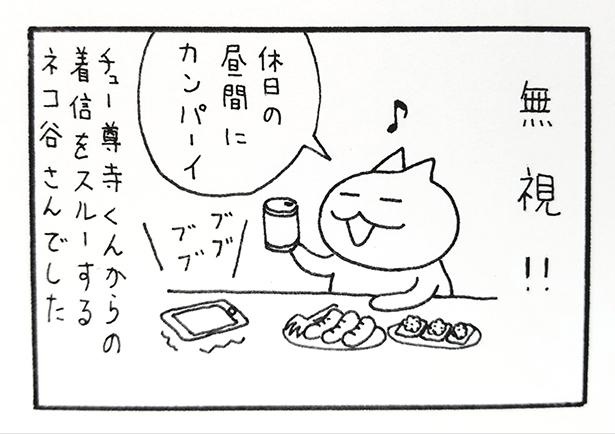 無視!!
休日の
昼間に
カンパーイ
♪
ブブブ
ブブ
チュー尊寺くんからの
着信をスルーする
ネコ谷さんでした